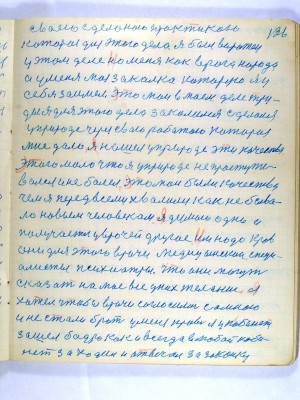 136
своего сделанного практикова
которая для этого дела я был воротам
у этом деле но меня как врага народа
а у меня моя закалка которую я у
себя заимел. Это мои в моем деле тру-
ды я для этого дела закалился сделался
у природе через свою работою которая
мне дала я нашел у природе эти качества
Этого мало что я у природе не простужи-
вался и не болел, Это мои были качества
чем я перед всеми хвалился как не быва-
ло новым человеком я думаю одно а
получается у врачей другое Им надо кров
они для этого врачи медицинские специ-
алисты психиатры что они могут
сказат на мое ведних желание. А
хотел чтобы врачи согласилис со мною
и не стали брат у меня крови я у кабинет
зашел бодро как и всегда в любой каби-
нет заходил и отвечал за закалку